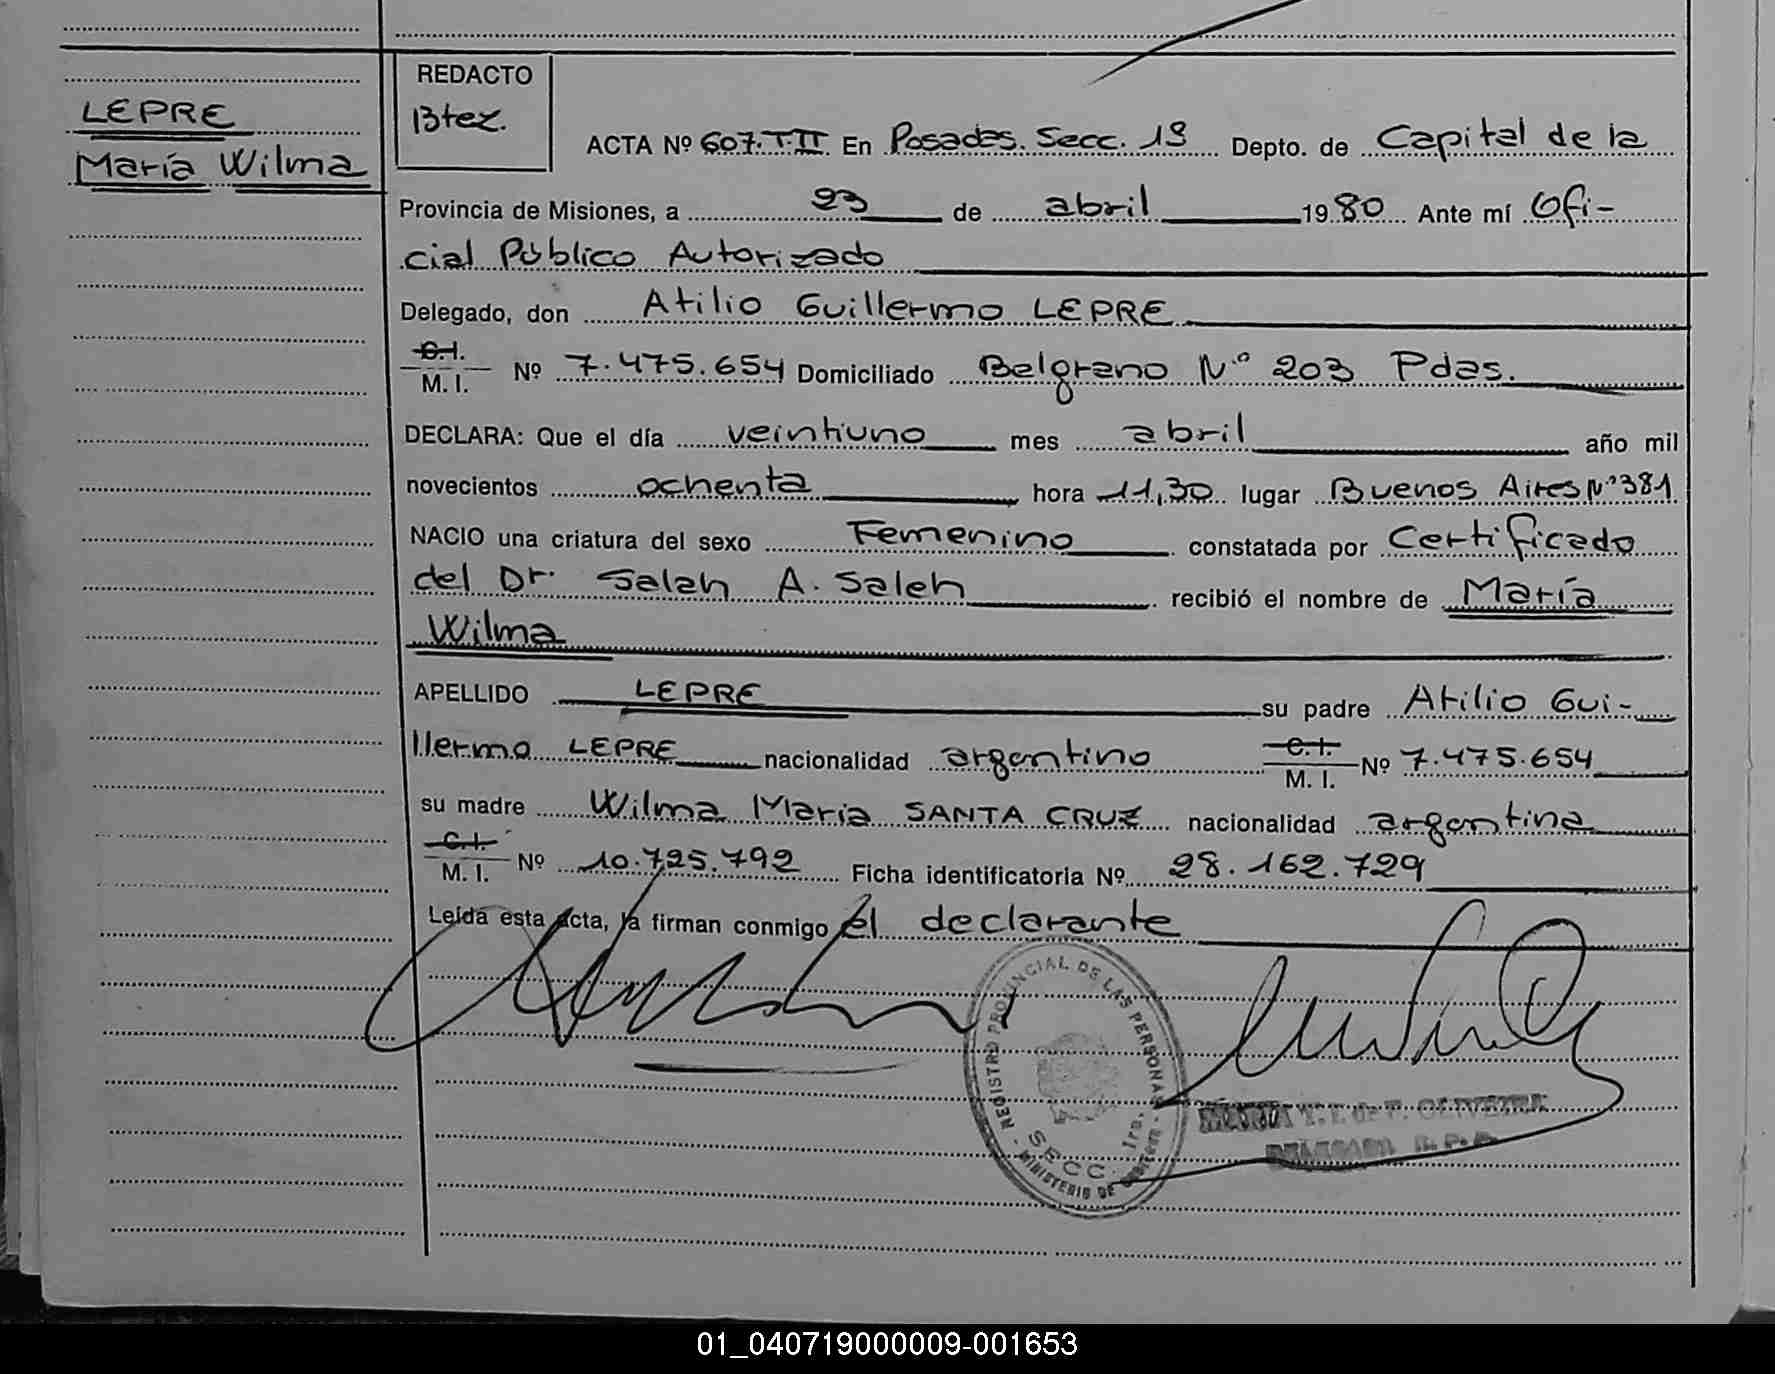 LEPRE
María Wilma
REDACTO
Btez.
ACTA Nº 607.T.II En Posadas. Secc. 1ª Depto. de Capital de la
Provincia de Misiones, a 23 de abril 1980 Ante mí Ofi-
cial Público Autorizado
Delegado, don Atilio Guillermo LEPRE
C.I.
M. I. Nº 7.475.654 Domiciliado Belgrano Nº 203 Pdas.
DECLARA: Que el día veintiuno mes abril año mil
novecientos ochenta hora 11,30 lugar Buenos Aires Nº 381
NACIO una criatura del sexo Femenino constatada por Certificado
del Dr. Saleh A. Saleh recibió el nombre de María
Wilma
APELLIDO LEPRE su padre Atilio Gui-
llermo LEPRE nacionalidad argentino C.I. M. I. Nº 7.475.654
su madre Wilma Maria SANTA CRUZ nacionalidad argentina
C.I.
M. I. Nº 10.725.792 Ficha identificatoria Nº 28.162.729
Leída esta acta, la firman conmigo el declarante
REGISTRO PROVINCIAL DE LAS PERSONAS
SECC. 1ra.
MINISTERIO DE
OLIVEIRA
01_040719000009-001653